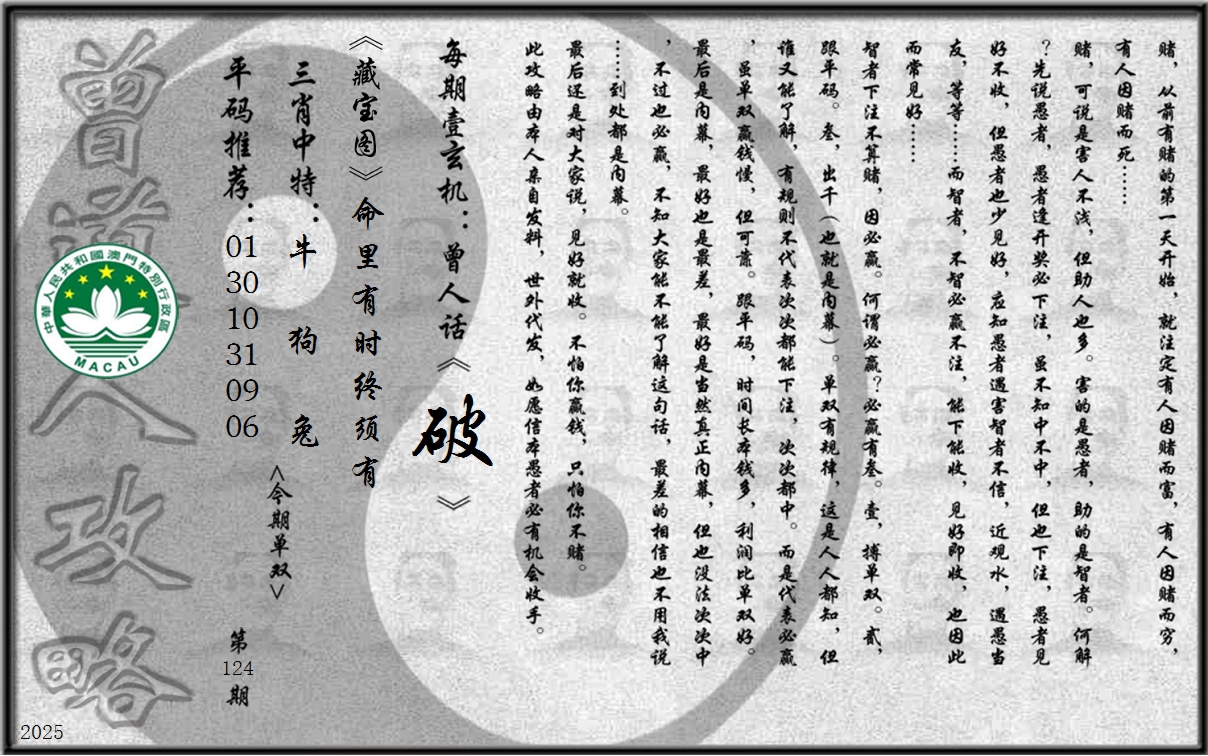 赌，从前有赌的第一天开始，就注定有人因赌而富，有人因赌而穷，
有人因赌而死……
赌，可说是害人不浅，但助人也多。害的是愚者，助的是智者。何解
？先说愚者，愚者逢开奖必下注，虽不知中不中，但也下注，愚者见
好不收，但愚者也少见好，应知愚者遇害智者不信，近观水，遇愚当
友，等等……而智者，不智必赢不注，能下能收，见好即收，也因此
而常见好……
智者下注不算赌，因必赢。何谓必赢？必赢有叁。壹，搏单双。贰，
跟平码。叁，出千（也就是内幕）。单双有规律，这是人人都知，但
谁又能了解，有规则不代表次次都能下注，次次都中。而是代表必赢
，虽单双赢钱慢，但可靠。跟平码，时间长本钱多，利润比单双好。
最后是内幕，最好也是最差，最好是当然真正内幕，但也没法次次中
，不过也必赢，不知大家能不能了解这句话，最差的相信也不用我说
……到处都是内幕。
最后还是对大家说，见好就收。不怕你赢钱，只怕你不赌。
此攻略由本人亲自发料，世外代发，如愿信本愚者必有机会收手。
每期壹玄机：曾人话《破》
《藏宝图》命里有时终须有
三肖中特：牛 狗 兔
<今期单双>
平码推荐：01 30 10 31 09 06
第124期
曾道人攻略
中華人民共和國澳門特別行政區
MACAU
2025